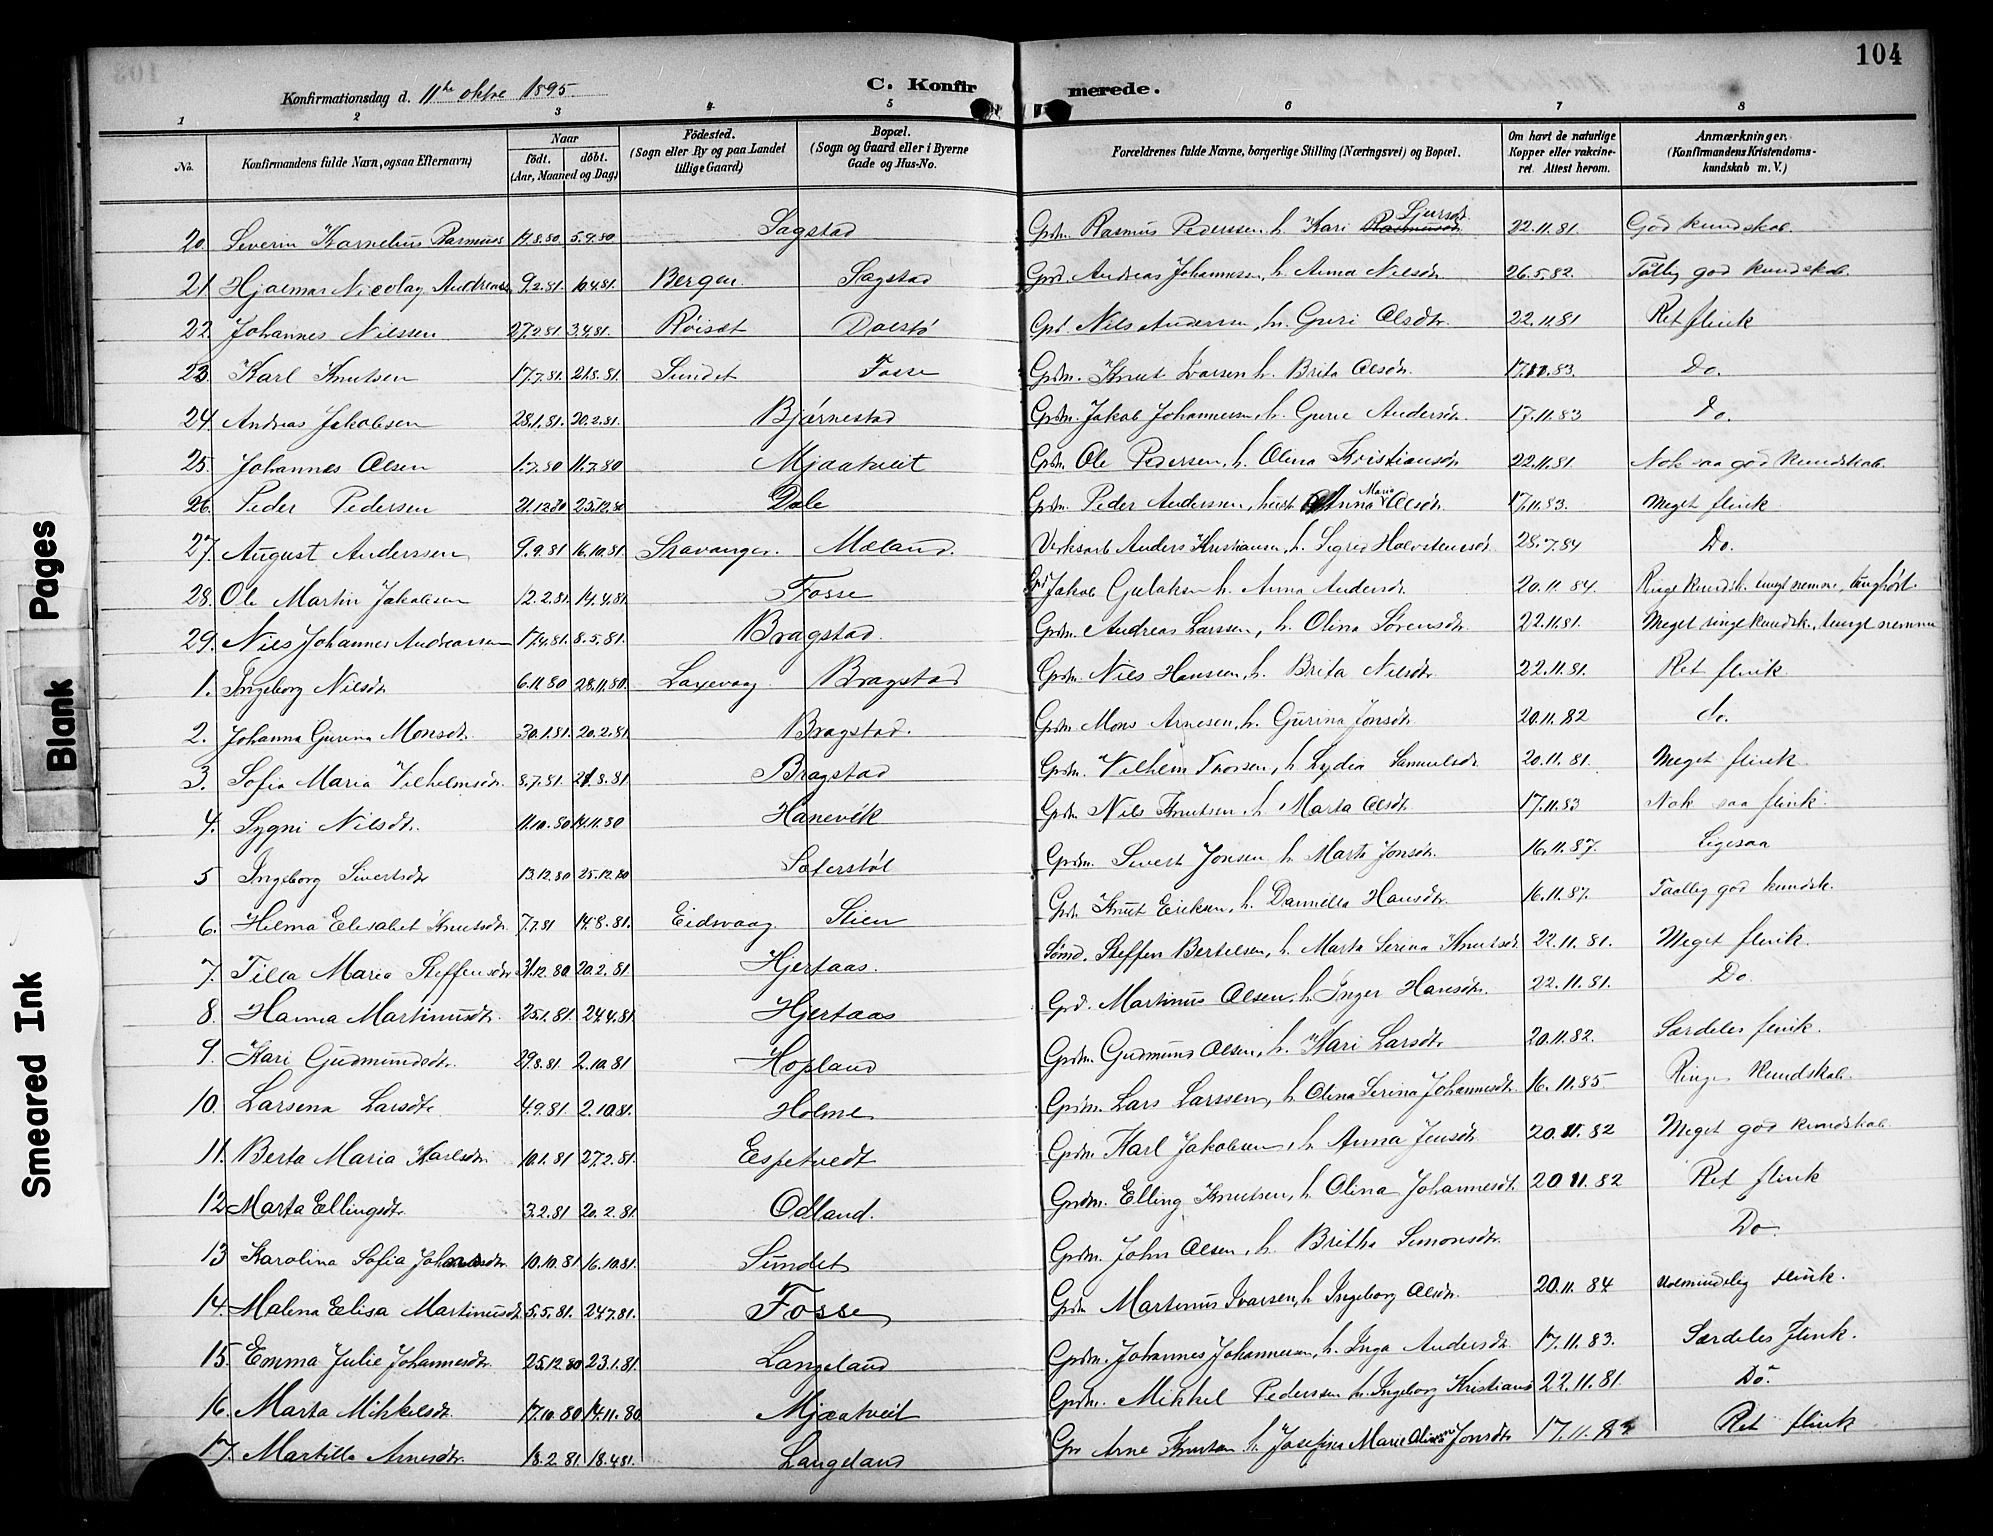 104
Konfirmationsdag d. 11te oktbr 1895
C. Konfirmerede.
1 2 3 4 5 6 7 8
No. Konfirmandens fulde Navn, ogsaa Efternavn) Naar födt. döbt. (Aar, Maaned og Dag) Födested. (Sogn eller By og paa Landet tillige Gaard) Bopæl. (Sogn og Gaard eller i Byerne Gade og Hus-No. Forældrenes fulde Navne, borgerlige Stilling (Næringsvei) og Bopæl. Om havt de naturlige Kopper eller vakcineret. Attest herom. Anmærkninger. (Konfirmandens Kristendomskundskab m. V.)
20. Severin Kornelius Rasmuss 14.8.80 5.9.80 Sagstad Grdm. Rasmus Pederssen, h. Kari Rasmusdr Sjursd. 22.11.81. God kundskab.
21 Hjalmar Nicolay Andreass 9.2.81. 10.4.81. Bergen Sagstad Grd. Andreas Johannessen, h. Anna Nilsdr. 26.5.82. Tållig god kundskab.
22. Johannes Nilssen 27.2.81. 3.4.81. Dalstø Grd. Nils Andersen, h. Guri Olsdtr. 22.11.81 Ret flink
23. Karl Knutsen 17.7.81. 21.8.81. Sundet Fosse Grdm. Knut Ivarsen h. Brita Olsdr. 17.11.83. Do.
24. Andreas Jakobsen 28.1.81. 20.2.81. Bjørnestad Grdm. Jakob Johannessen, h. Gurie Andersdr. 17.11.83 Do.
25. Johannes Olsen 1.7.80 11.7.80 Mjaatveit Grdm. Ole Pedersen, h. Olina Kristiansdr 22.11.81. Nok saa god kundskab.
26. Peder Pedersen 21.12.80 25.12.80 Dale Grdm. Peder Anderssen, hust. Anna Maria Olsdr. 17.11.83. Meget flink
27. August Anderssen 9.9.81 16.10.81. Stavanger. Mæland. Verksarb. Anders Kristiansen, h. Sigrid Halvstensdr. 28.7.84 Do.
28. Ole Martin Jakobsen 12.2.81. 14.4.81. Fosse Grd Jakob Gulaksen h. Anna Andersdr. 20.11.84. Ringe kundsk. tungt nemme, tunghørt
29. Nils Johannes Andreassen 17.4.81. 8.5.81. Bragstad. Grdm. Andreas Larssen, h. Olina Sørensdr. 22.11.81. Meget ringe kundsk., tungt nemme
1. Ingeborg Nilsdr. 6.11.80 28.11.80. Laxevaag. Bragstad Grdm. Nils Hanssen, h. Brita Nilsdtr. 22.11.81. Ret flink.
2. Johanna Gurina Monsdr. 30.1.81. 20.2.81 Bragstad. Grdm. Mons Arnesen, h. Gurina Jonsdr. 20.11.82 do.
3. Sofia Maria Vilhelmsdr. 8.7.81. 21.8.81 Bragstad Grdm. Vilhelm Thorsen, h. Lydia Samuelsdr 20.11.81. Meget flink.
4. Sygni Nilsdr. 11.10.80 14.11.80 Hanevik Grdm. Nils Knutsen, h. Marta Olsdr. 17.11.83 Nok saa flink.
5 Ingeborg Sivertsdr 13.12.80 25.12.80 Sæterstøl Grdm. Sivert Jonsen, h. Marta Jonsdr. 16.11.87. Ligesaa
6. Helma Elisabet Knutsdr. 7.7.81 14.8.81. Eidsvaag. Stien Grd. Knut Eriksen, h. Daniella Hansdr. 16.11.87. Taallig god kundsk.
7. Tilla Maria Steffensdr. 31.12.80 20.2.81. Hjertaas. Sømd. Steffen Bertelsen, h. Marta Serina Knutsdr. 22.11.81. Meget flink.
8. Hanna Martinusdr. 25.1.81. 24.4.81. Hjertaas Grd. Martinus Olsen, h. Inger Hansdr. 22.11.81. Do.
9. Kari Gudmundsdr. 29.8.81 2.10.81 Hopland Grdm. Gudmund Olsen, h. Kari Larsdr. 20.11.82. Særdeles flink.
10. Larsena Larsdr. 4.9.81. 2.10.81. Holme Grdm. Lars Larssen, h. Olina Serina Johannesdr. 16.11.85 Ringe kundskab.
11. Berta Maria Karlsdr. 10.1.81 27.2.81. Espetvedt Grdm. Karl Jakobsen, h. Anna Jensdr. 20.11.82 Meget god kundskab.
12. Marta Ellingsdr. 3.2.81 20.2.81. Odland. Grdm. Elling Knutsen, h. Olina Johannesdr. 20.11.82 Ret flink
13 Karolina Sofia Johnsdr. 10.10.81 16.10.81. Sundet Grdm. John Olsen, h. Britha Simonsdr. Do.
14. Malena Elisa Martinusdr. 5.5.81. 24.7.81. Fosse Grdm Martinus Ivarsen, h. Ingeborg Olsdr. 20.11.84 Ualmindelig flink.
15. Emma Julie Johannesdr. 25.12.80 23.1.81. Langeland Grdm. Johannes Johannessen, h. Inga Andersdr. 17.11.83. Særdeles flink.
16. Marta Mikkelsdr. 17.10.80 14.11.80. Mjaatveit Grdm. Mikkel Pederssen h. Ingeborg Kristians 22.11.81. Do.
17. Martilla Arnesdr. 18.2.81. 18.4.81. Langeland Grd Arne Knutsen h. Josefine Marie Jonsdr. 17.11. Ret flink
Blank Pages
Smeared Ink